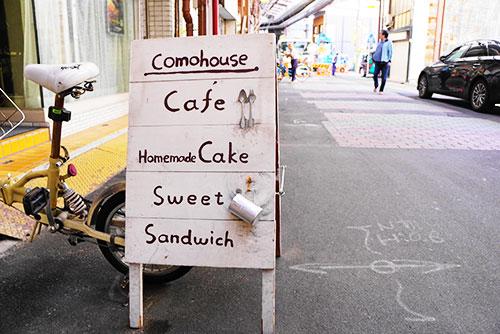 Comohouse
Cafe
Homemade Cake
Sweet
Sandwich